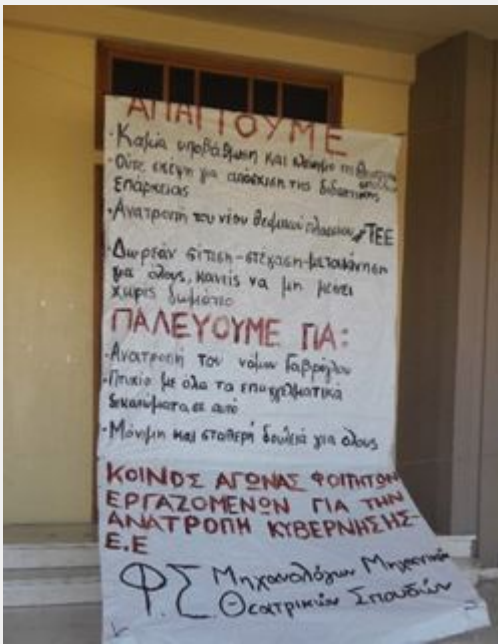 ΑΠΑΙΤΟΥΜΕ
· Καμία υποβάθμιση και κλείσιμο της
· Ούτε σκέψη για απόσχιση της διδακτικής
Επάρκειας
· Ανατροπή του νέου θεσμικού πλαισίου ΤΕΕ
· Δωρεάν σίτιση-στέγαση-μετακίνηση
για όλους, κανείς να μη μείνει
χωρίς δωμάτιο
ΠΑΛΕΥΟΥΜΕ ΓΙΑ:
· Ανατροπή του νόμου Γαβρόγλου
· Πτυχίο με όλα τα επαγγελματικά
δικαιώματα σε αυτό
· Μόνιμη και σταθερή δουλειά για όλους
ΚΟΙΝΟΣ ΑΓΩΝΑΣ ΦΟΙΤΗΤΩΝ
ΕΡΓΑΖΟΜΕΝΩΝ ΓΙΑ ΤΗΝ
ΑΝΑΤΡΟΠΗ ΚΥΒΕΡΝΗΣΗΣ-
Ε.Ε
Φ.Σ Μηχανολόγων Μηχανικών
Θεατρικών Σπουδών